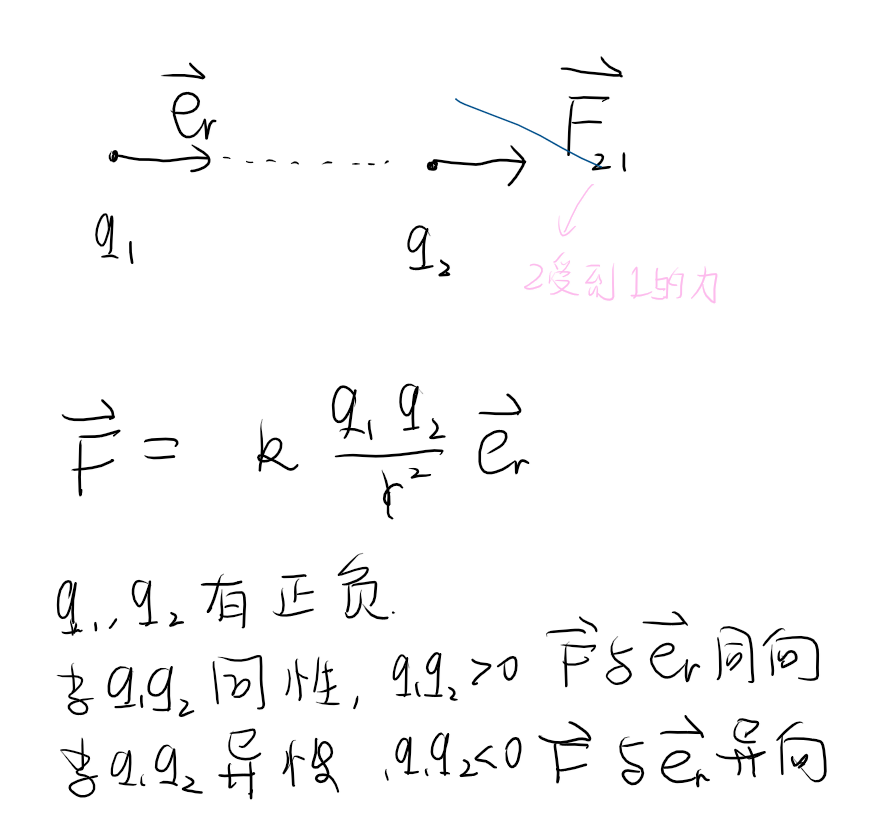 e⃗ᵣ F⃗₂₁
q₁ q₂
2受到1的力
F⃗ = k q₁q₂/r² e⃗ᵣ
q₁,q₂有正负.
当q₁q₂同性,q₁q₂>0 F⃗与e⃗ᵣ同向
当q₁q₂异性,q₁q₂<0 F⃗与e⃗ᵣ异向